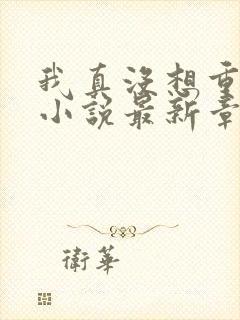 我真沒想重
小說最新章
衛華